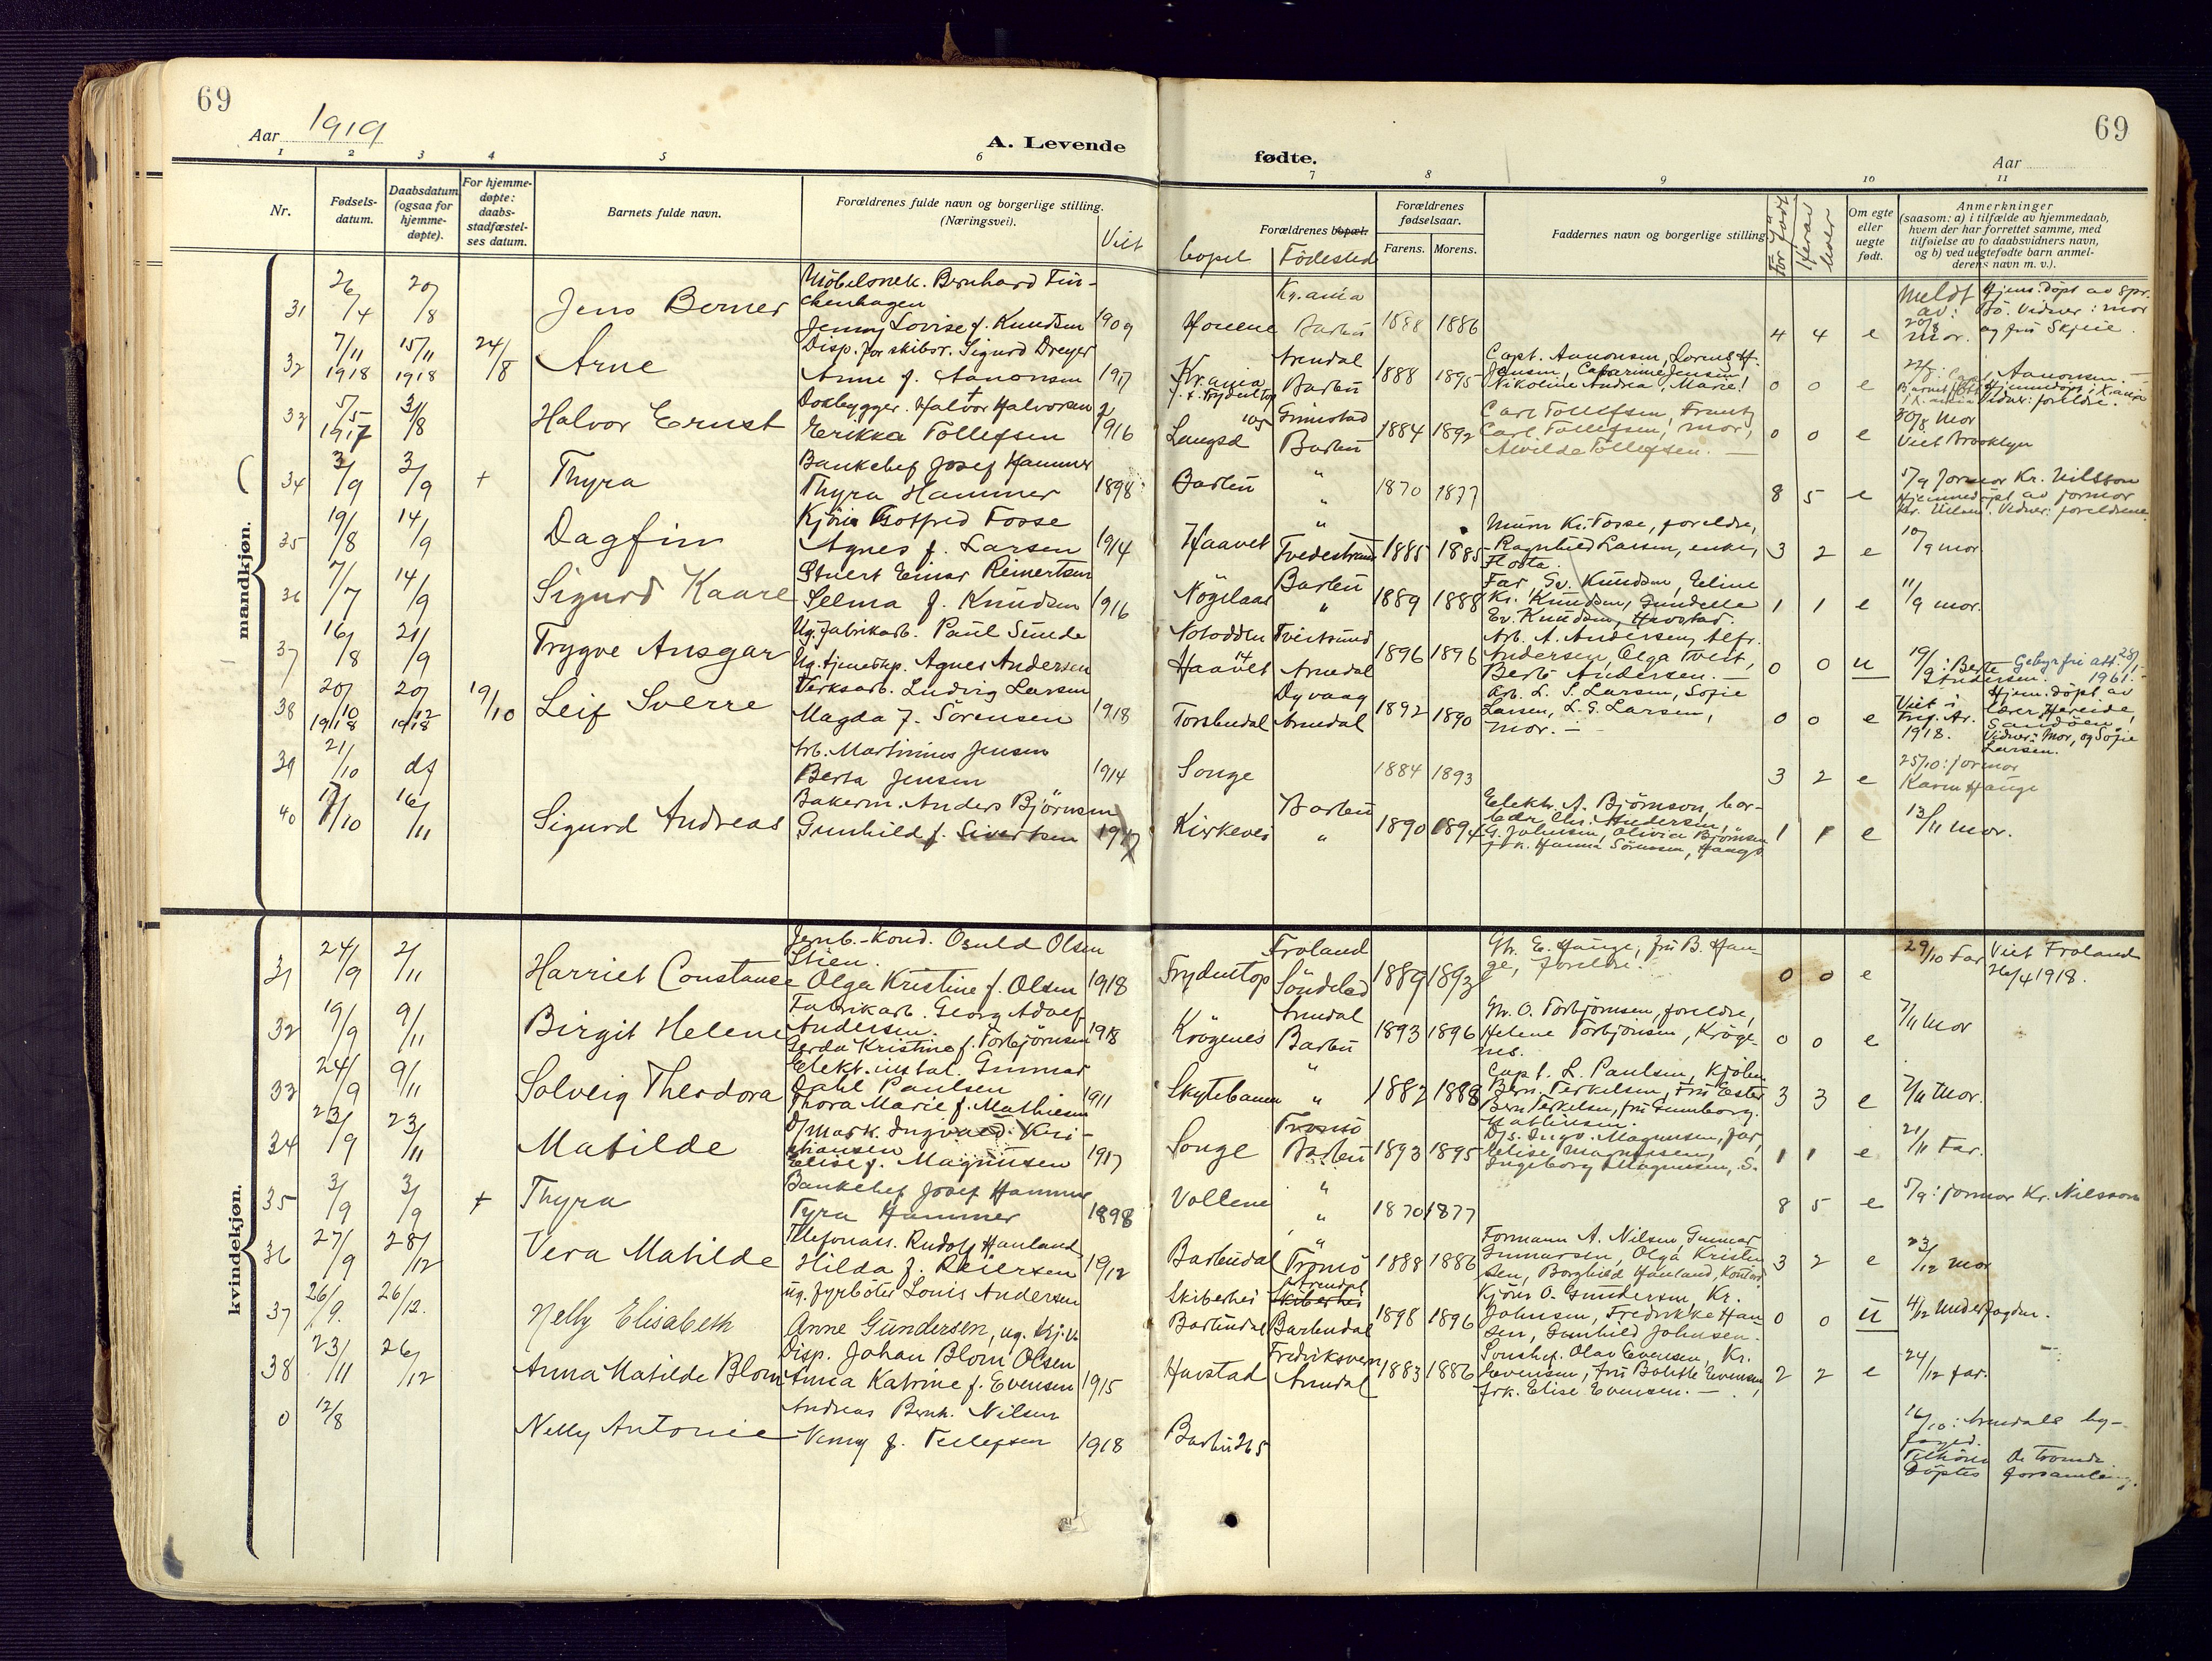 69
69
Aar 1919
A. Levende
fødte.
Aar
1 2 3 4 5 6 7 8 9 10 11
Nr.
Fødsels-
datum.
Daabsdatum
(ogsaa for
hjemme-
døpte).
For hjemme-
døpte:
daabs-
stadfæstel-
ses datum.
Barnets fulde navn.
Forældrenes fulde navn og borgerlige stilling.
(Næringsvei).
Viet
Forældrenes bopæl.
bopel Fødested
Forældrenes
fødselsaar.
Farens. Morens.
Faddernes navn og borgerlige stilling
Før født
Herav lever
Om egte
eller
uegte
født.
Anmerkninger
(saasom: a) i tilfælde av hjemmedaab,
hvem der har forrettet samme, med
tilføielse av to daabsvidners navn,
og b) ved uegtefødte barn anmel-
derens navn m. v.).
mandkjøn.
31 26/4 20/8 Jens Berner
Møbelsnek. Bernhard Fin-
ckenhagen
Jenny Lovise f. Knudsen 1909
Kr.ania
Barbu 1888 1886 4 4 e
Meldt av: 20/8 mor.
Hjem.døpt av spr.
Vidner: mor
og fru Skjeie.
32 7/11 1918 15/11 1918 24/8 Arne
Disp. for skibsr. Sigurd Dreyer
Anne f. Aanonsen 1917
Kr.ania
Arendal
Barbu 1888 1895
Capt. Aanonsen, Lorens H.
Jensen, Catharine Jensen
Nikoline Andrea Marie!
0 0 e
Aanonsen.
Hjemmedøpt i Kr.ania
Vidner: foreldre.
33 5/5 1917 3/8 Halvor Ernst
Halvor Halvorsen
Erikka Tollefsen 1916
Langsæ 105 Grimstad
Barbu 1884 1892
Carl Tollefsen, Frantz
Carl Tollefsen, mor,
Alvilde Tollefsen. —
0 0 e
30/8 mor
Viet Brooklyn
34 3/9 3/9 + Thyra
Bankchef Josef Hammer
Thyra Hammer 1898
Barbu " " 1870 1877 8 5 e
5/9 Formor Kr. Nilsson
Hjemmedøpt av formor
Kr. Nilsen. Vidner: foreldrene
35 19/8 14/9 Dagfin
Kjøris Gotfred Fosse
Agnes f. Larsen 1914
Haavet "
Tvedestrand 1885 1885
Murm Kr. Fosse, foreldre,
Ragnhild Larsen, enke,
Flosta.
3 2 e 10/9 mor
36 7/7 14/9 Sigurd Kaare
Stuert Einar Reinertsen
Selma f. Knudsen 1916
Nøgelaas Barbu
" 1889 1888
Far, Gv. Knudsen, Eline
Kr. Knudsen, Gundelle
Ev. Knudsen, Havstad.
1 1 e 11/9 mor.
37 16/8 21/9 Trygve Ansgar
Ug. fabrikarb. Paul Sunde
Ug. tjenestep. Agnes Andersen
Notodden Tveitsund
Haavet 14 Arendal 1896 1896
Arb. A. Andersen, Alfr.
Andersen, Olga Tveit,
Berte Andersen. —
0 0 u
19/9: Berte Andersen.
Gebyrfri att. 28/1-1961.
38 20/10 1918 20/12 1918 19/10 Leif Sverre
Verksarb. Ludvig Larsen
Magda f. Sørensen 1918
Dyvaag
Torsbudal Arendal 1892 1890
Arb. L. S. Larsen, Sofie
Larsen, L. G. Larsen,
mor. —
0 0 e
Viet i
1918.
Hjem.døpt av
lærer Hereide,
Sandøen
Vidner: Mor, og Sofie
Larsen.
39 21/10 df
Arb. Martinius Jensen
Berta Jensen 1914
Songe 1884 1893 3 2 e
25/10: formor
Karen Hauge
40 17/10 16/11 Sigurd Andreas
Bakerm. Anders Bjørnsen
Gunhild f. Sivertsen 1917
Kirkevei Barbu
" 1890 1894
Elekt. A. Bjørnson, bar-
ber Chr. Andersen,
G. Johnsen, Olivia Bjørnsen
frk. Hanna Sørensen,
1 1 e 13/11 mor.
kvindekjøn.
31 24/9 2/11 Harriet Constanse
Jernb.-kond. Osuld Olsen
Stien.
Olga Kristine f. Olsen 1918
Frydentop Froland
Søndeled 1889 1893
Gr. E. Hauge, fru B. Hau-
ge, foreldre.
0 0 e 29/10 Far
Viet Froland
26/4 1918.
32 19/9 9/11 Birgit Helene
Fabrikarb. Georg Adolf
Andersen.
Gerda Kristine f. Torbjørnsen 1918
Krøgenes Arendal
Barbu 1893 1896
Gr. O. Torbjørnsen, foreldre,
Helene Torbjønsen, Krøge-
nes.
0 0 e 7/11 Mor
33 24/9 9/11 Solveig Theodora
Elekt. instal. Gunnar
Dahl Paulsen
Thora Marie f. Mathiesen 1911
Skytebanen " " 1882 1888
Capt. L. Paulsen, Kjøbm
Bern. Terkelsen, Fru Ester
Bern Terkelsen, fru Gunnborg.
Mathiesen.
3 3 e 7/11 Mor.
34 23/9 23/11 Matilde
D/mask. Ingvald Kri-
stiansen
Elise f. Magnusen 1917
Songe Tromø
Barbu 1893 1895
D/s. Ingv. Magnusen, far,
Elise Magnussen,
Ingeborg Magnusen, S.
1 1 e 21/11 Far.
35 3/9 3/9 + Thyra
Bankchef Josef Hammer
Tyra Hammer 1898
Vollene " " 1870 1877 8 5 e
5/9: formor Kr. Nilsson
36 27/9 28/12 Vera Matilde
Telefonass. Rudolf Hanland
Hilda f. Reiersen 1912
Barbudal "
Tromø 1888 1886
Formann A. Nilsen, Gunnar
Gunnarsen, Olga Kristen
sen, Borghild Hanland, Kontor
3 2 e 23/12 mor
37 26/9. 26/12. Nelly Elisabeth
ug. fyrbøter Louis Andersen
Anne Gundersen, ug.
Skiberhei Arendal
Skiberhei
Barbudal Barbudal 1898 1896
Kjøris O. Gundersen, Kr.
Johnsen, Fredrikke Han
sen, Gunhild Johnsen.
0 0 u 4/12 Underfogden.
38 23/11 26/12 Anna Matilde Blom
Disp. Johan Blom Olsen
Anna Katrine f. Evensen 1915
Havstad Fredriksvern
Arendal 1883 1886
Olav Evensen, Kr.
Evensen, Fru Bolette Evensen
frk. Elise Evensen. —
2 2 e 24/12 far.
0 12/8 Nelly Antonie
Andreas Bernh. Nilsen
Venny f. Tellefsen 1918
Barbu 265
16/10: Arendals by-
foged.
Tilhører De Troende
Døptes forsamling.